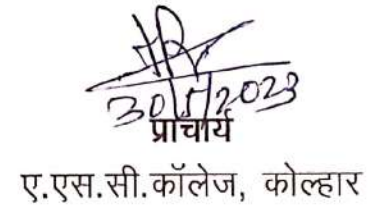 30/5/2023
प्राचार्य
ए.एस.सी.कॉलेज, कोल्हार